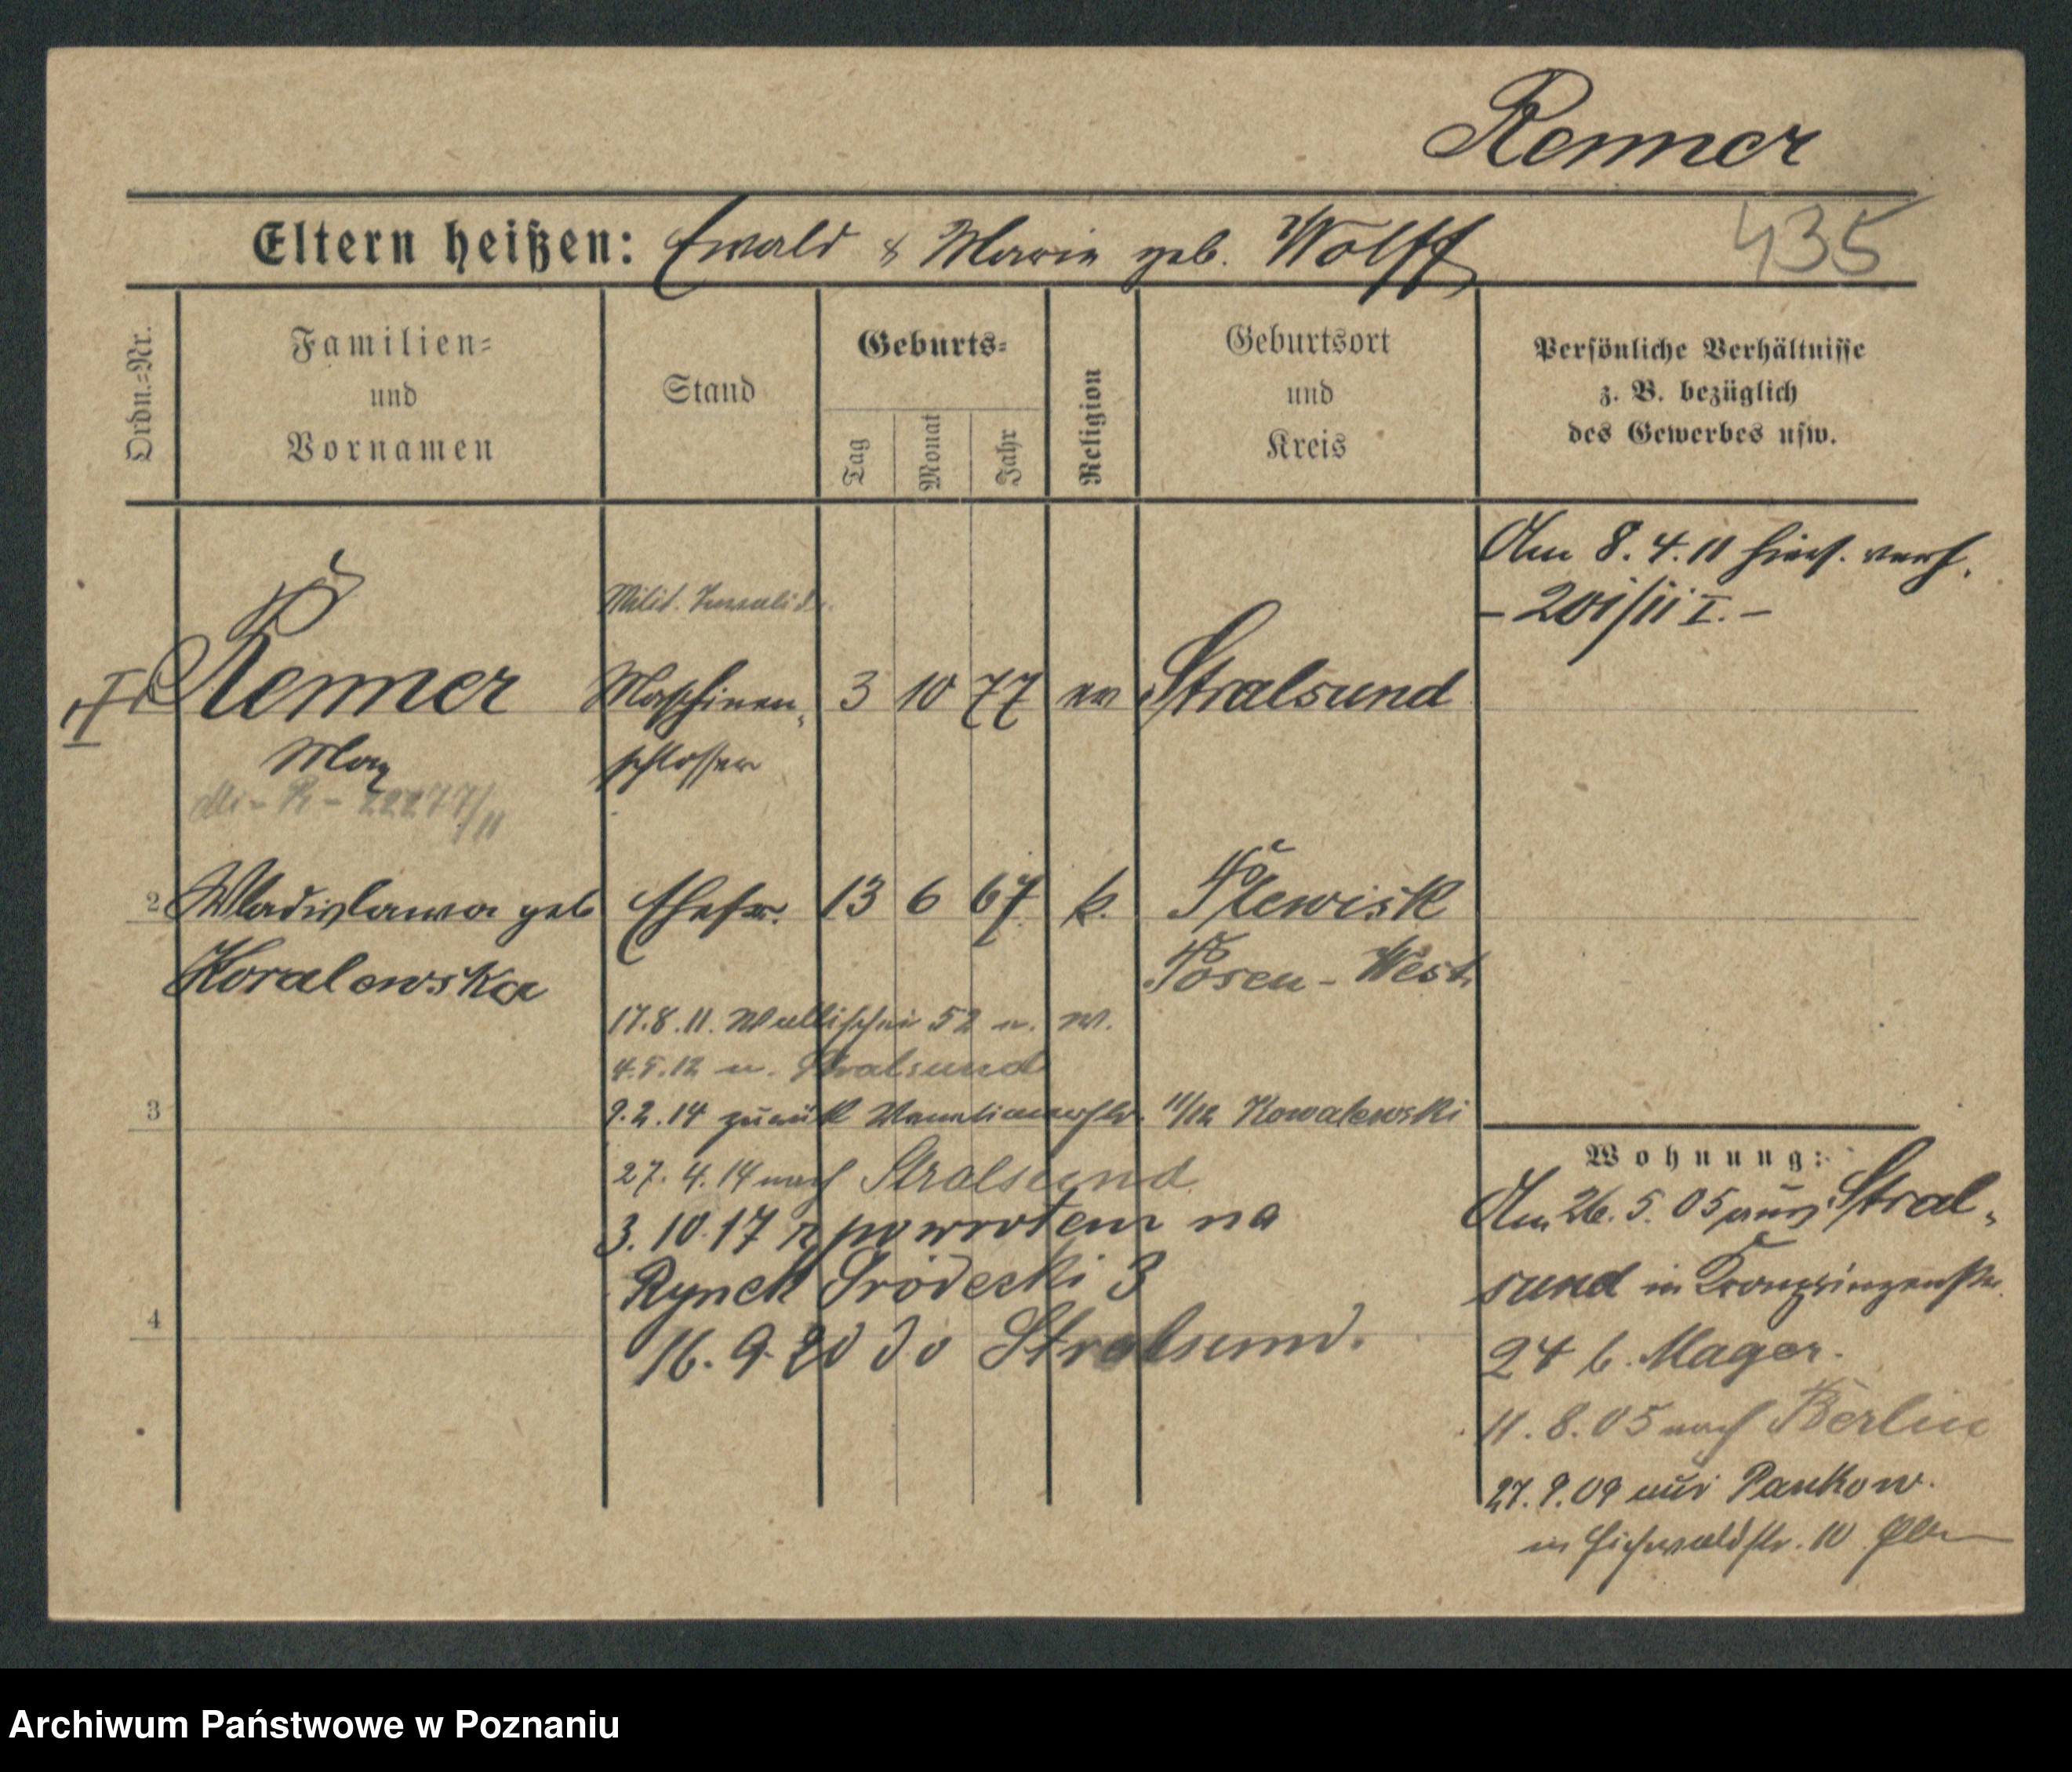 Renner
435
Eltern heißen: Ewald & Marie geb. Wolff
Ordn.-Nr.
Familien-
und
Vornamen
Stand
Geburts-
Tag
Monat
Jahr
Religion
Geburtsort
und
Kreis
Persönliche Verhältnisse
z. B. bezüglich
des Gewerbes usw.
Am 8.4.11 hies. verh.
- 201/11 I. -
Milit. Invalide
Renner
Maschinen-
3 10 77 ev Stralsund
Max
schlosser
22277/11
2 Wladislawa geb
Ehefr. 13 6 67 k. Plewisk
Koralewska
Posen-West
17.8.11. Wallischei 52 u. w.
4.5.12 n. Stralsund
3
9.2.14 zurück 11/12 Kowalewski
27.4.14 nach Stralsund
3.10.17 z powrotem na
Rynek Śródecki 3
4
16.9.20 do Stralsund.
Wohnung:
Am 26.5.05 aus Stral-
sund in Kronprinzenstr.
24 b. Mager.
11.8.05 nach Berlin
27.9.09 aus Pankow.
in Eichwaldstr. 10
Archiwum Państwowe w Poznaniu